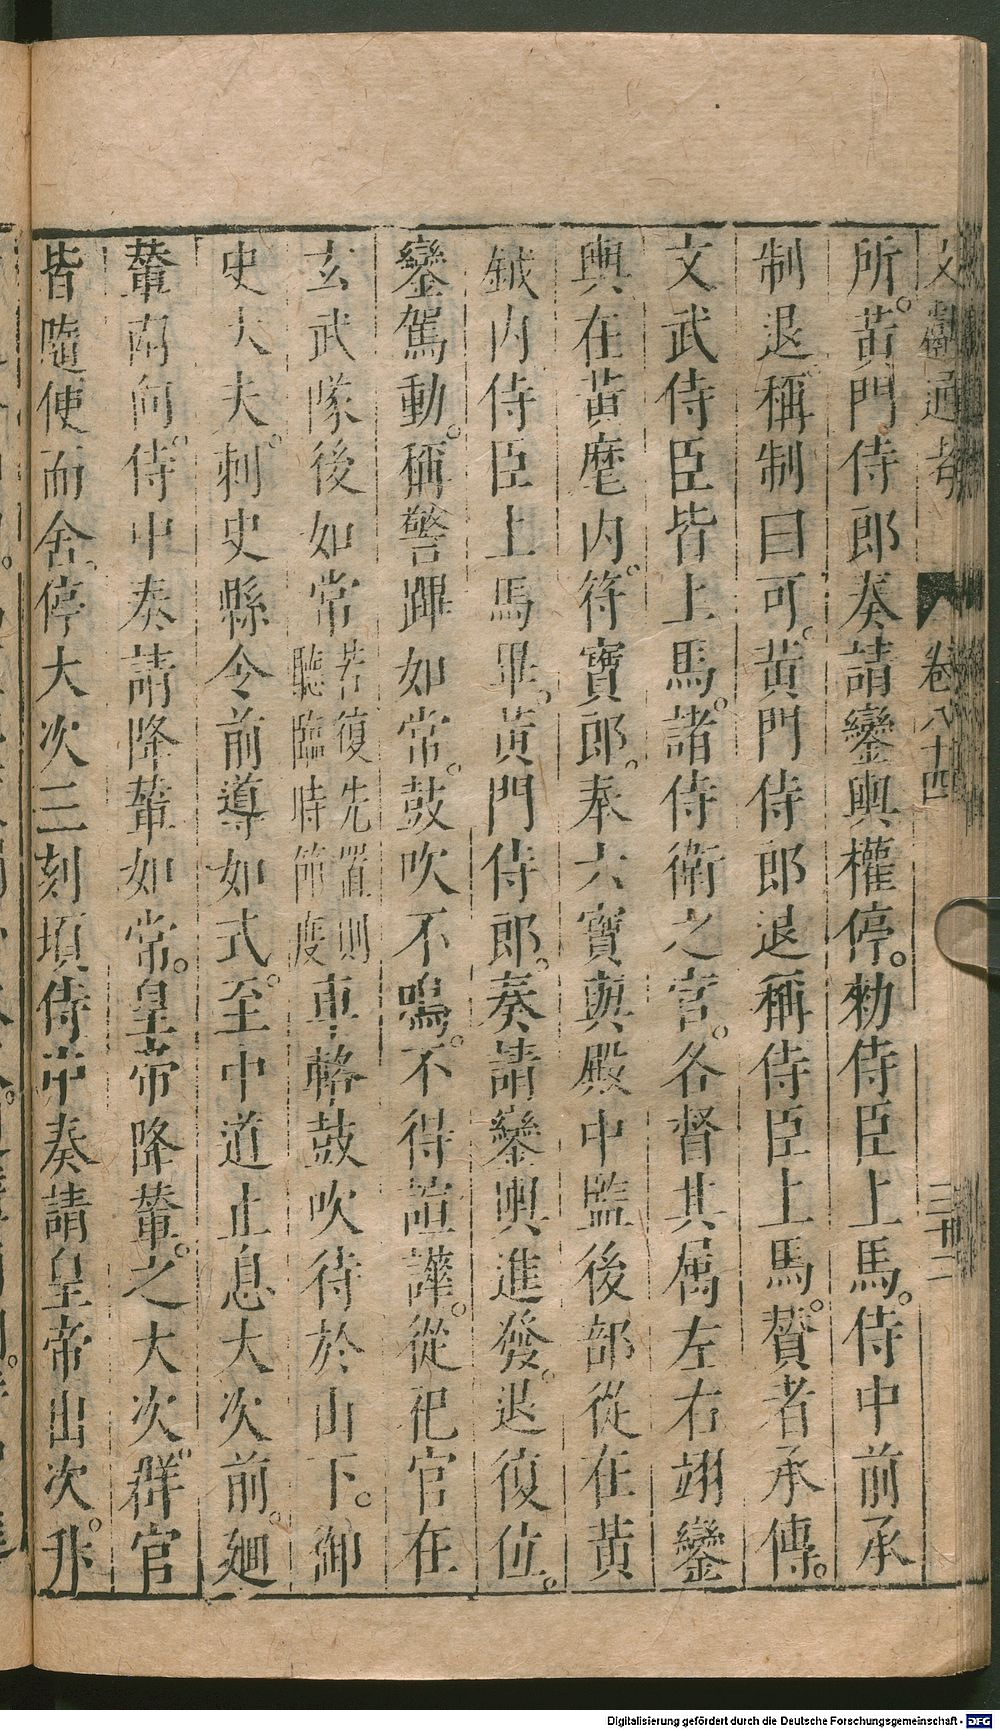 文獻通考 卷八十四 三十二
所。黃門侍郎奏請鑾輿權停。勑侍臣上馬。侍中前承
制退稱制曰可。黃門侍郎退稱侍臣上馬。贊者承傳。
文武侍臣皆上馬。諸侍衛之官。各督其属左右翊鑾
輿在黃麾内。符寶郎。奉六寶與殿中監後部從在黃
鉞内侍臣上馬畢。黃門侍郎。奏請鑾輿進發。退復位。
鑾駕動。稱警蹕如常。鼓吹不鳴。不得諠譁。從祀官在
玄武隊後如常若復先置則聽臨時節度車輅鼓吹待於山下。御
史大夫。刺史縣令前導如式。至中道止息大次前。廻
輦南向。侍中奏請降輦如常。皇帝降輦。之大次。群官
皆隨使而舍。停大次三刻頃侍中奏請皇帝出次。升
Digitalisierung gefördert durch die Deutsche Forschungsgemeinschaft - DFG